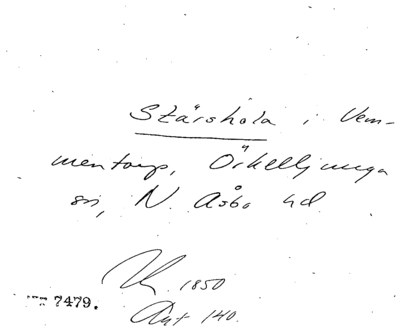 Stärshola i Vem-
mentorp, Örkelljunga
sn, N. Åsbo hd
1850
7479.
Art 140.